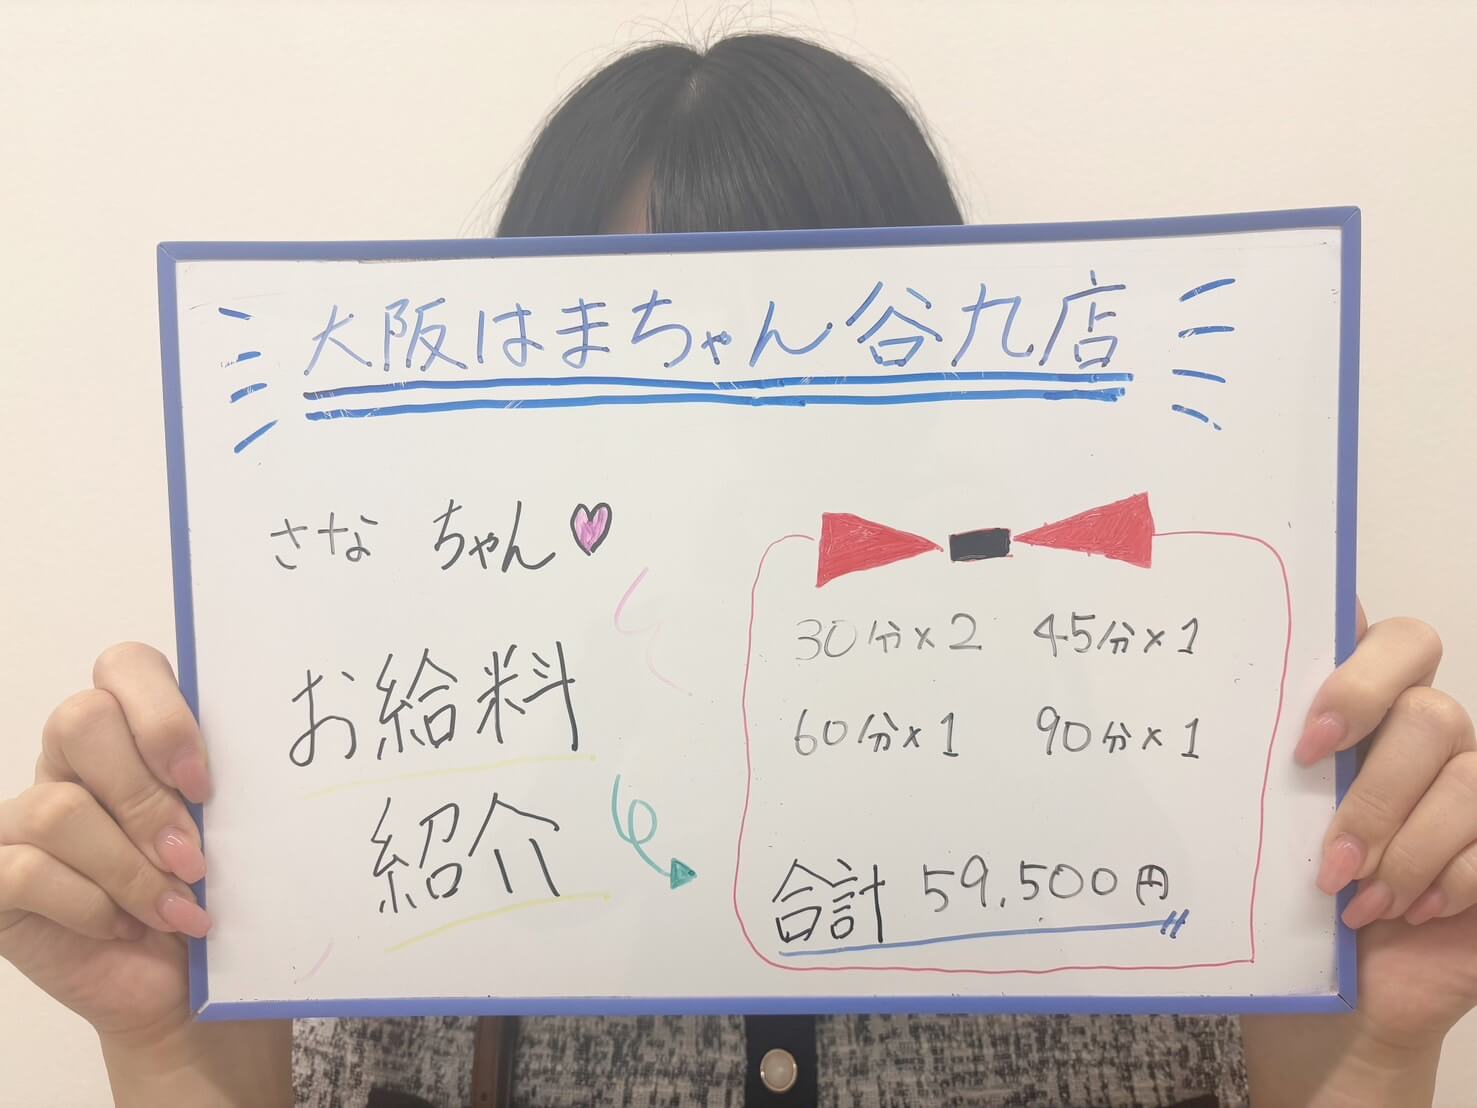 大阪はまちゃん谷九店
さな ちゃん
お給料
紹介
30分×2 45分×1
60分×1 90分×1
合計 59,500円